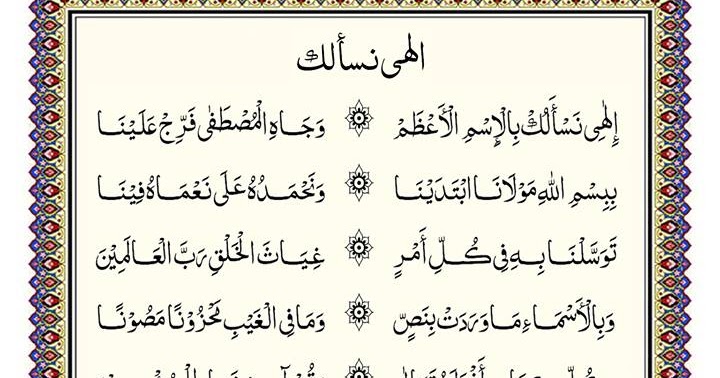 الهي نسألك
إِلٰهِي نَسْأَلُكْ بِالْإِسْمِ الْأَعْظَمْ وَجَاهِ الْمُصْطَفٰى فَرِّجْ عَلَيْنَا
بِبِسْمِ اللهِ مَوْلَانَا ابْتَدَيْنَا وَنَحْمَدُهُ عَلَى نَعْمَاهُ فِيْنَا
تَوَسَّلْنَا بِهِ فِي كُلِّ أَمْرٍ غِيَاثَ الْخَلْقِ رَبَّ الْعَالَمِيْنَ
وَبِالْأَسْمَاءِ مَا وَرَدَتْ بِنَصٍّ وَمَا فِي الْغَيْبِ مَخْزُوْنًا مَصُوْنًا